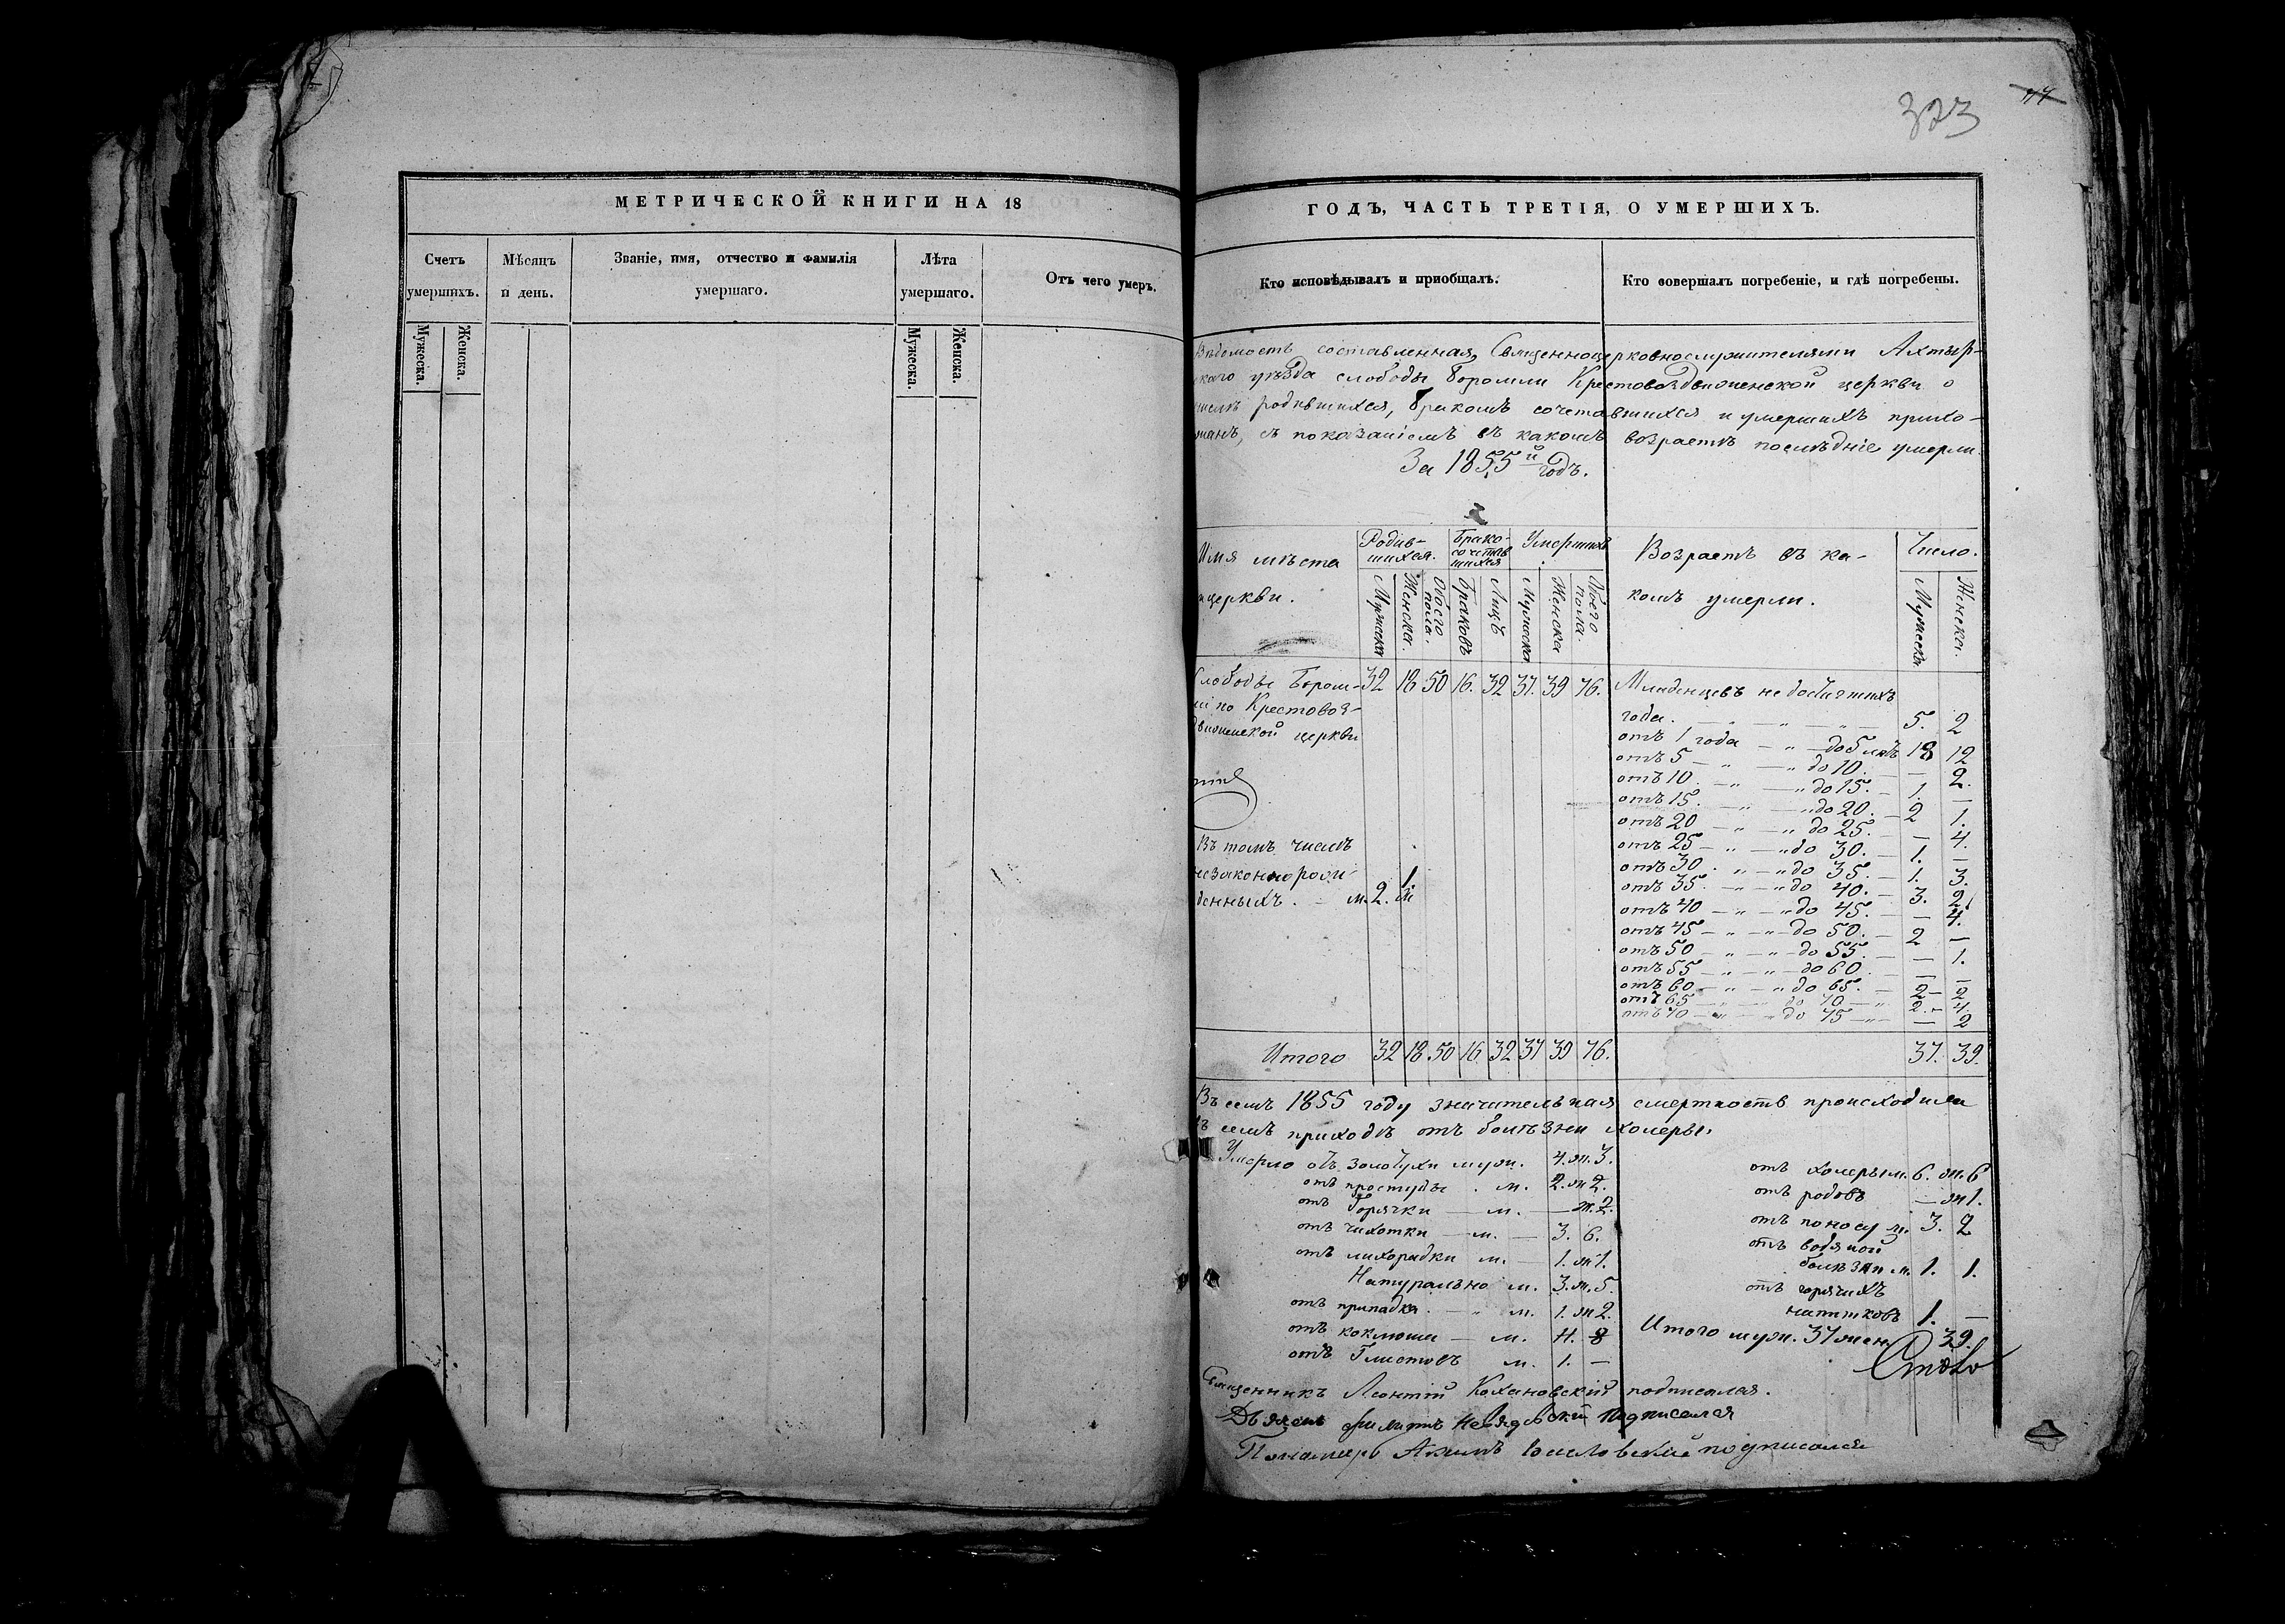 323
МЕТРИЧЕСКОЙ КНИГИ НА 18
Счетъ умершихъ.
Мужеска.
Женска.
Мѣсяцъ и день.
Званіе, имя, отчество и фамилія умершаго.
Лѣта умершаго.
Мужеска.
Женска.
Отъ чего умеръ.
ГОДЪ, ЧАСТЬ ТРЕТІЯ, О УМЕРШИХЪ.
Кто исповѣдывалъ и пріобщалъ.
Кто совершалъ погребеніе, и гдѣ погребены.
Вѣдомость составленная, Священноцерковнослужителями Ахтыр-
скаго уѣзда слободы Боромли Крестовоздвиженской церкви о
числѣ родившихся, бракомъ сочетавшихся и умершихъ прихо-
жанъ, съ показаніемъ въ какомъ возрастѣ послѣдніе умерли.
За 1855й годъ.
Имя мѣста
и церкви.
Родив-
шихся.
Мужеска
Женска.
Обоего пола.
Брако-
сочетав
шихся
Браковъ
Лицъ
Умершихъ
Мужеска
Женска
Обоего пола.
Возрастъ въ ка-
комъ умерли.
Число.
Мужеска.
Женска.
Слободы Бором-
ли по Крестовоз-
движенской церкви
32 18 50 16. 32 37. 39 76.
Младенцевъ не достигшихъ
года. 5. 2
отъ 1 года — до 5 лѣтъ 18 12
отъ 5 — до 10. — 2.
отъ 10. — до 15. — 1. —
отъ 15. — до 20. — 2 1.
отъ 20 — до 25. — 4.
отъ 25 — до 30. — 1. —
отъ 30. — до 35. — 1. 3.
отъ 35. — до 40. — 3. 2.
отъ 40 — до 45. — 4.
отъ 45 — до 50. — 2 —
отъ 50 — до 55. — 1.
отъ 55 — до 60. — —
отъ 60 — до 65. — 2 — 2
отъ 65 — до 70 — 2. — 4.
отъ 70 — до 75 — — 2
Въ томъ числѣ
незаконнорож-
денныхъ. — м. 2. ж 1
Итого 32 18 50 16 32 37 39 76. 37. 39.
Въ семъ 1855 году значительная смертность происходила
въ семъ приходѣ отъ болѣзни холеры.
Умерло отъ золотухи муж. 4. ж. 3.
отъ простуды. м. 2. ж 2.
отъ Горячки — м. — ж. 2.
отъ чихотки — м. — 3. 6.
отъ лихорадки м. — 1. ж 1.
Натурально м. 3. ж. 5.
отъ припадка. — м. 1. ж 2.
отъ коклюша — м. 11. 8
отъ Глистовъ м. 1. —
отъ холеры м. 6. ж. 6
отъ родовъ — ж 1.
отъ поносу м. 3. 2
отъ водяной
болѣзни м. 1. 1.
отъ горячихъ
напитковъ 1. —
Итого муж. 37 жен. 39.
Священникъ Леонтій Кохановскій подписался.
Дьяконъ Филиппъ подписался
Пономарь Акимъ подписался